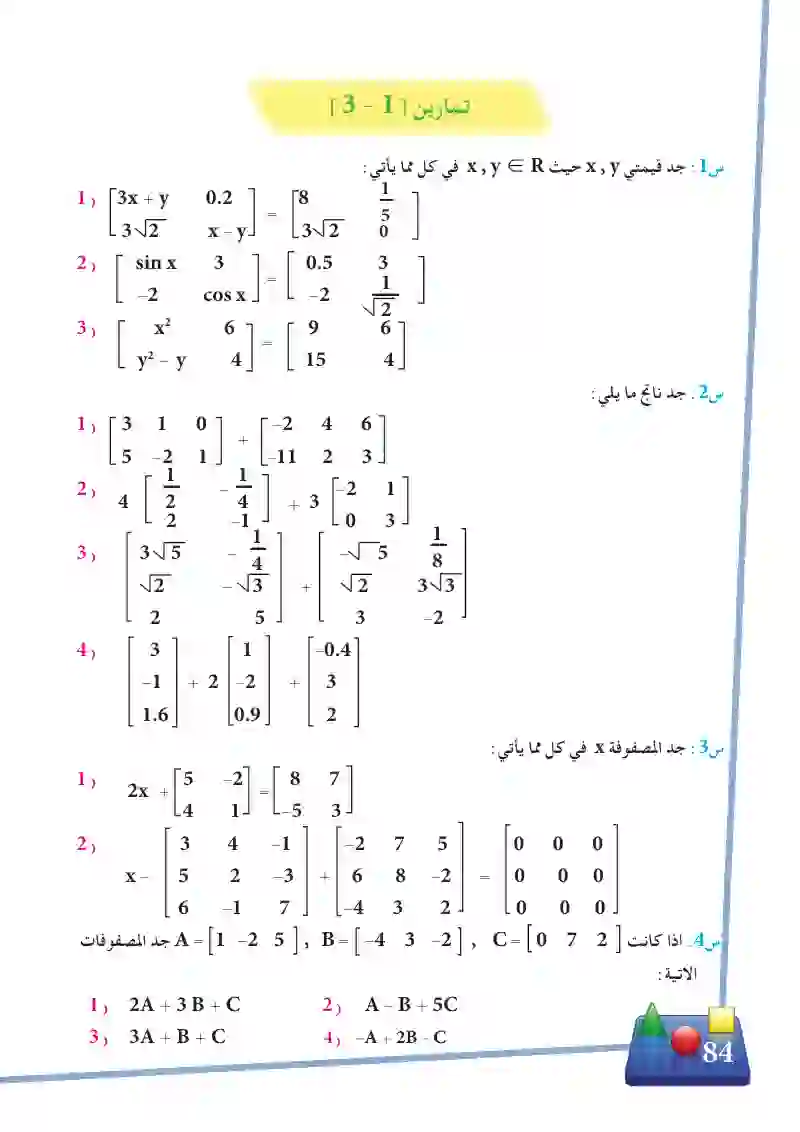 تمارين [ 3 - 1 ]
س1 : جد قيمتي x , y حيث x , y ∈ R في كل مما يأتي :
1) [3x + y 0.2 ; 3√2 x – y] = [8 1/5 ; 3√2 0]
2) [sin x 3 ; –2 cos x] = [0.5 3 ; –2 1/√2]
3) [x² 6 ; y² – y 4] = [9 6 ; 15 4]
س2 . جد ناتج ما يلي :
1) [3 1 0 ; 5 –2 1] + [–2 4 6 ; –11 2 3]
2) 4 [1/2 –1/4 ; 2 –1] + 3 [–2 1 ; 0 3]
3) [3√5 –1/4 ; √2 –√3 ; 2 5] + [–√5 1/8 ; √2 3√3 ; 3 –2]
4) [3 ; –1 ; 1.6] + 2 [1 ; –2 ; 0.9] + [–0.4 ; 3 ; 2]
س3 : جد المصفوفة x في كل مما يأتي :
1) 2x + [5 –2 ; 4 1] = [8 7 ; –5 3]
2) x – [3 4 –1 ; 5 2 –3 ; 6 –1 7] + [–2 7 5 ; 6 8 –2 ; –4 3 2] = [0 0 0 ; 0 0 0 ; 0 0 0]
س4. اذا كانت A = [1 –2 5] , B = [–4 3 –2] , C = [0 7 2] جد المصفوفات
الآتية :
1) 2A + 3 B + C 2) A – B + 5C
3) 3A + B + C 4) –A + 2B – C
84